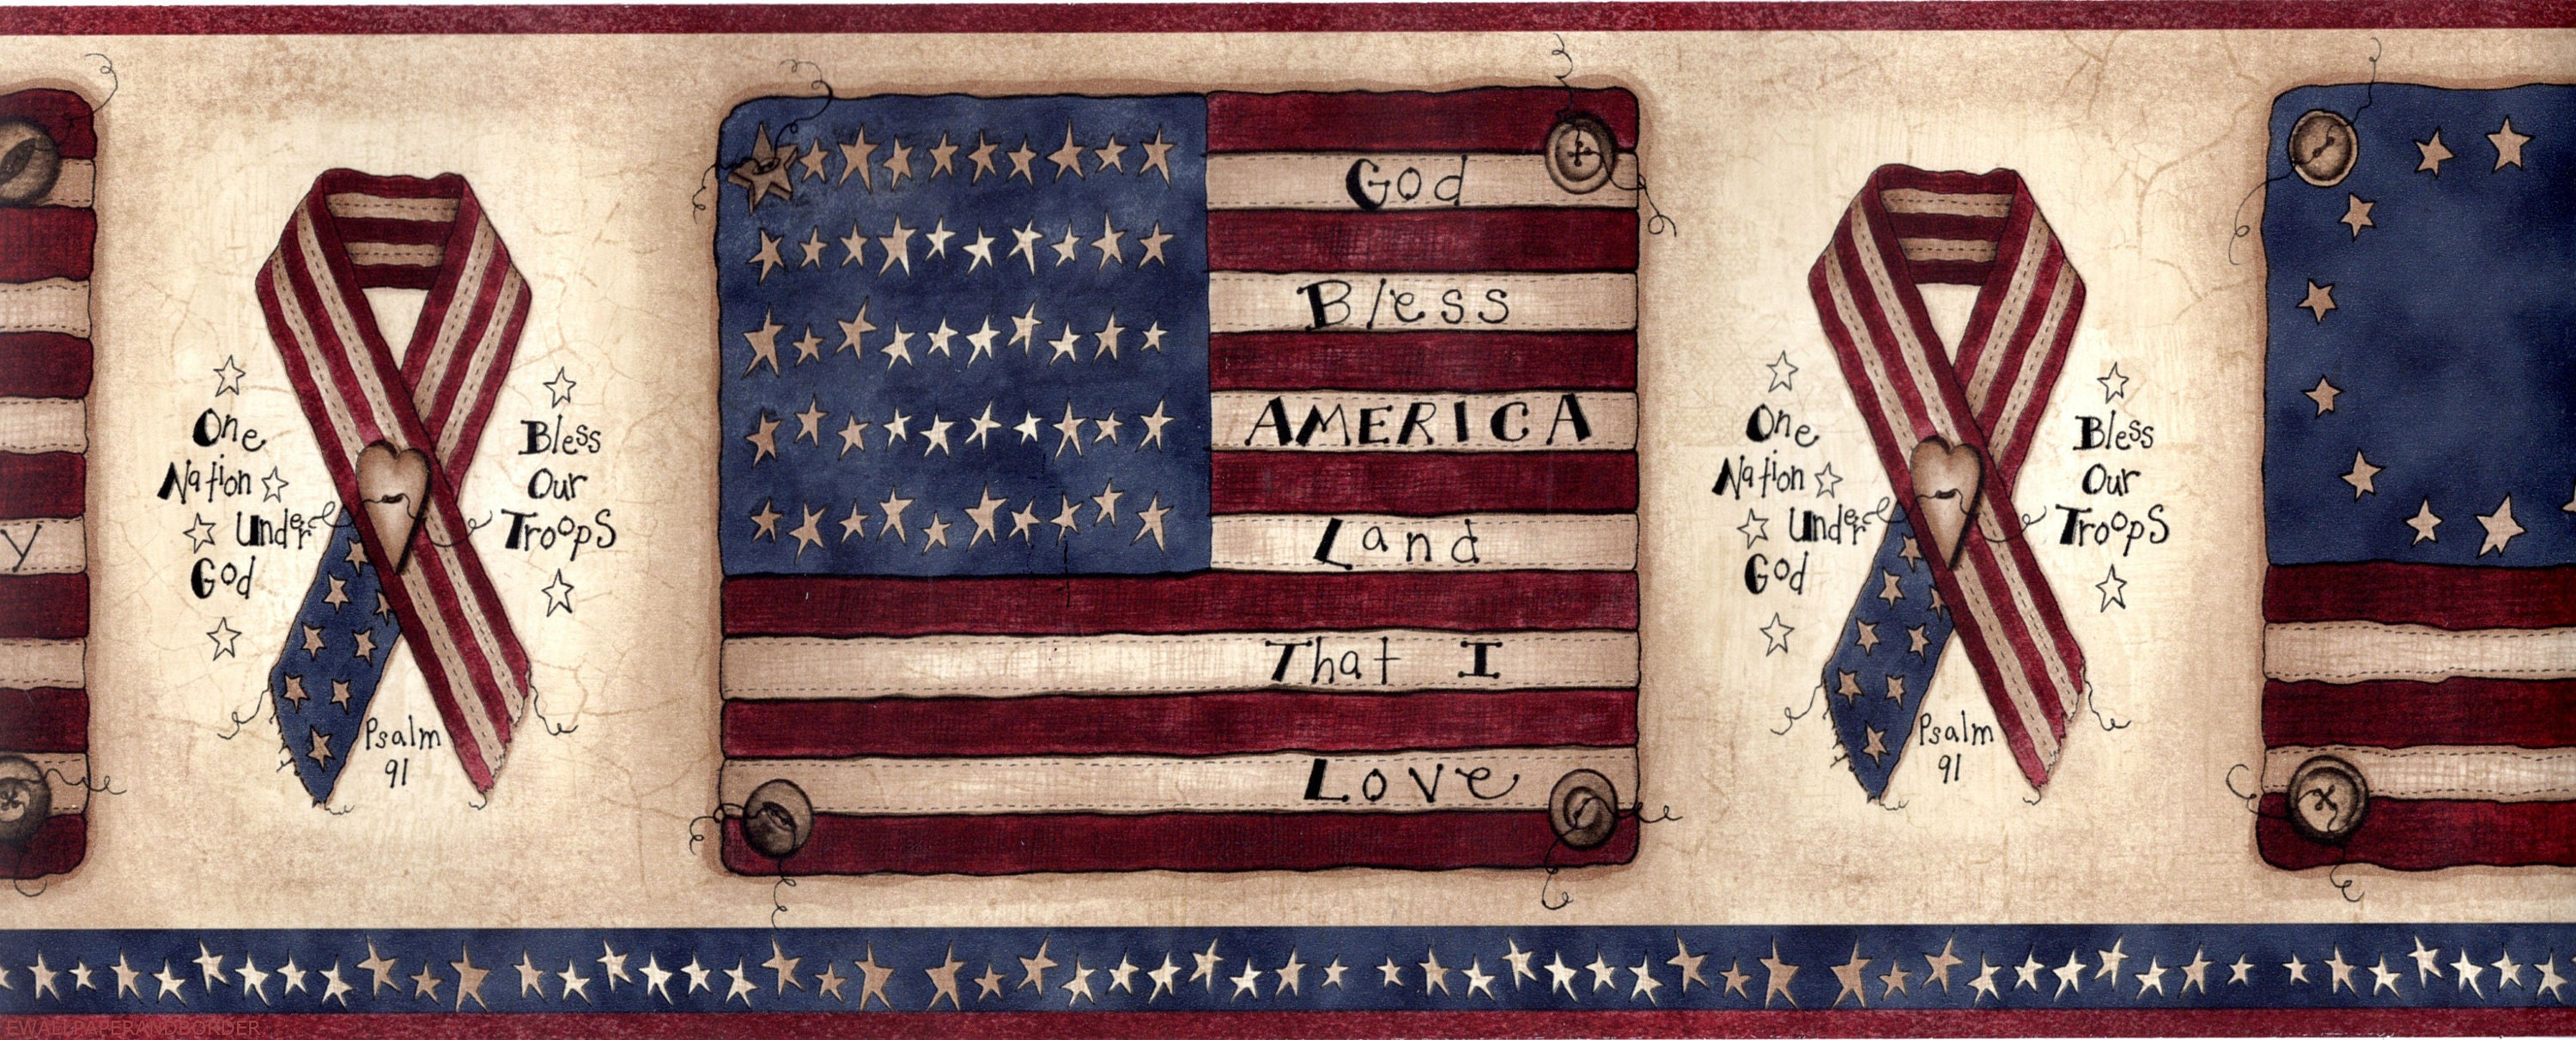 y
One
Nation
Under
God
Bless
Our
Troops
Psalm
91
God
Bless
AMERICA
Land
That I
Love
One
Nation
Under
God
Bless
Our
Troops
Psalm
91
EWALLPAPERANDBORDER